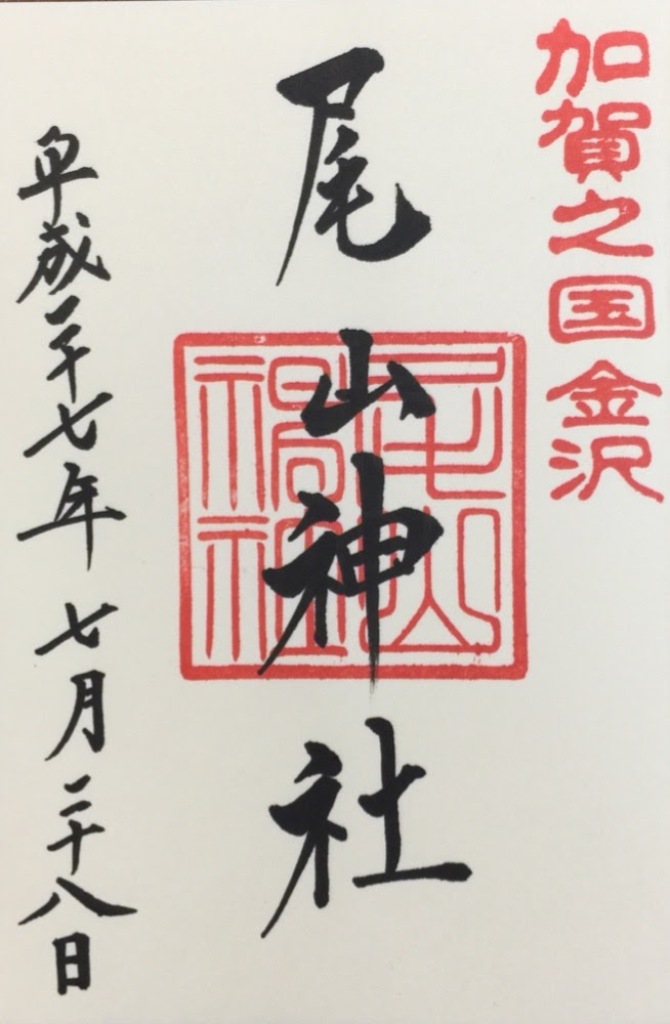 加賀之国金沢
尾山神社
尾山神社
平成二十七年七月二十八日